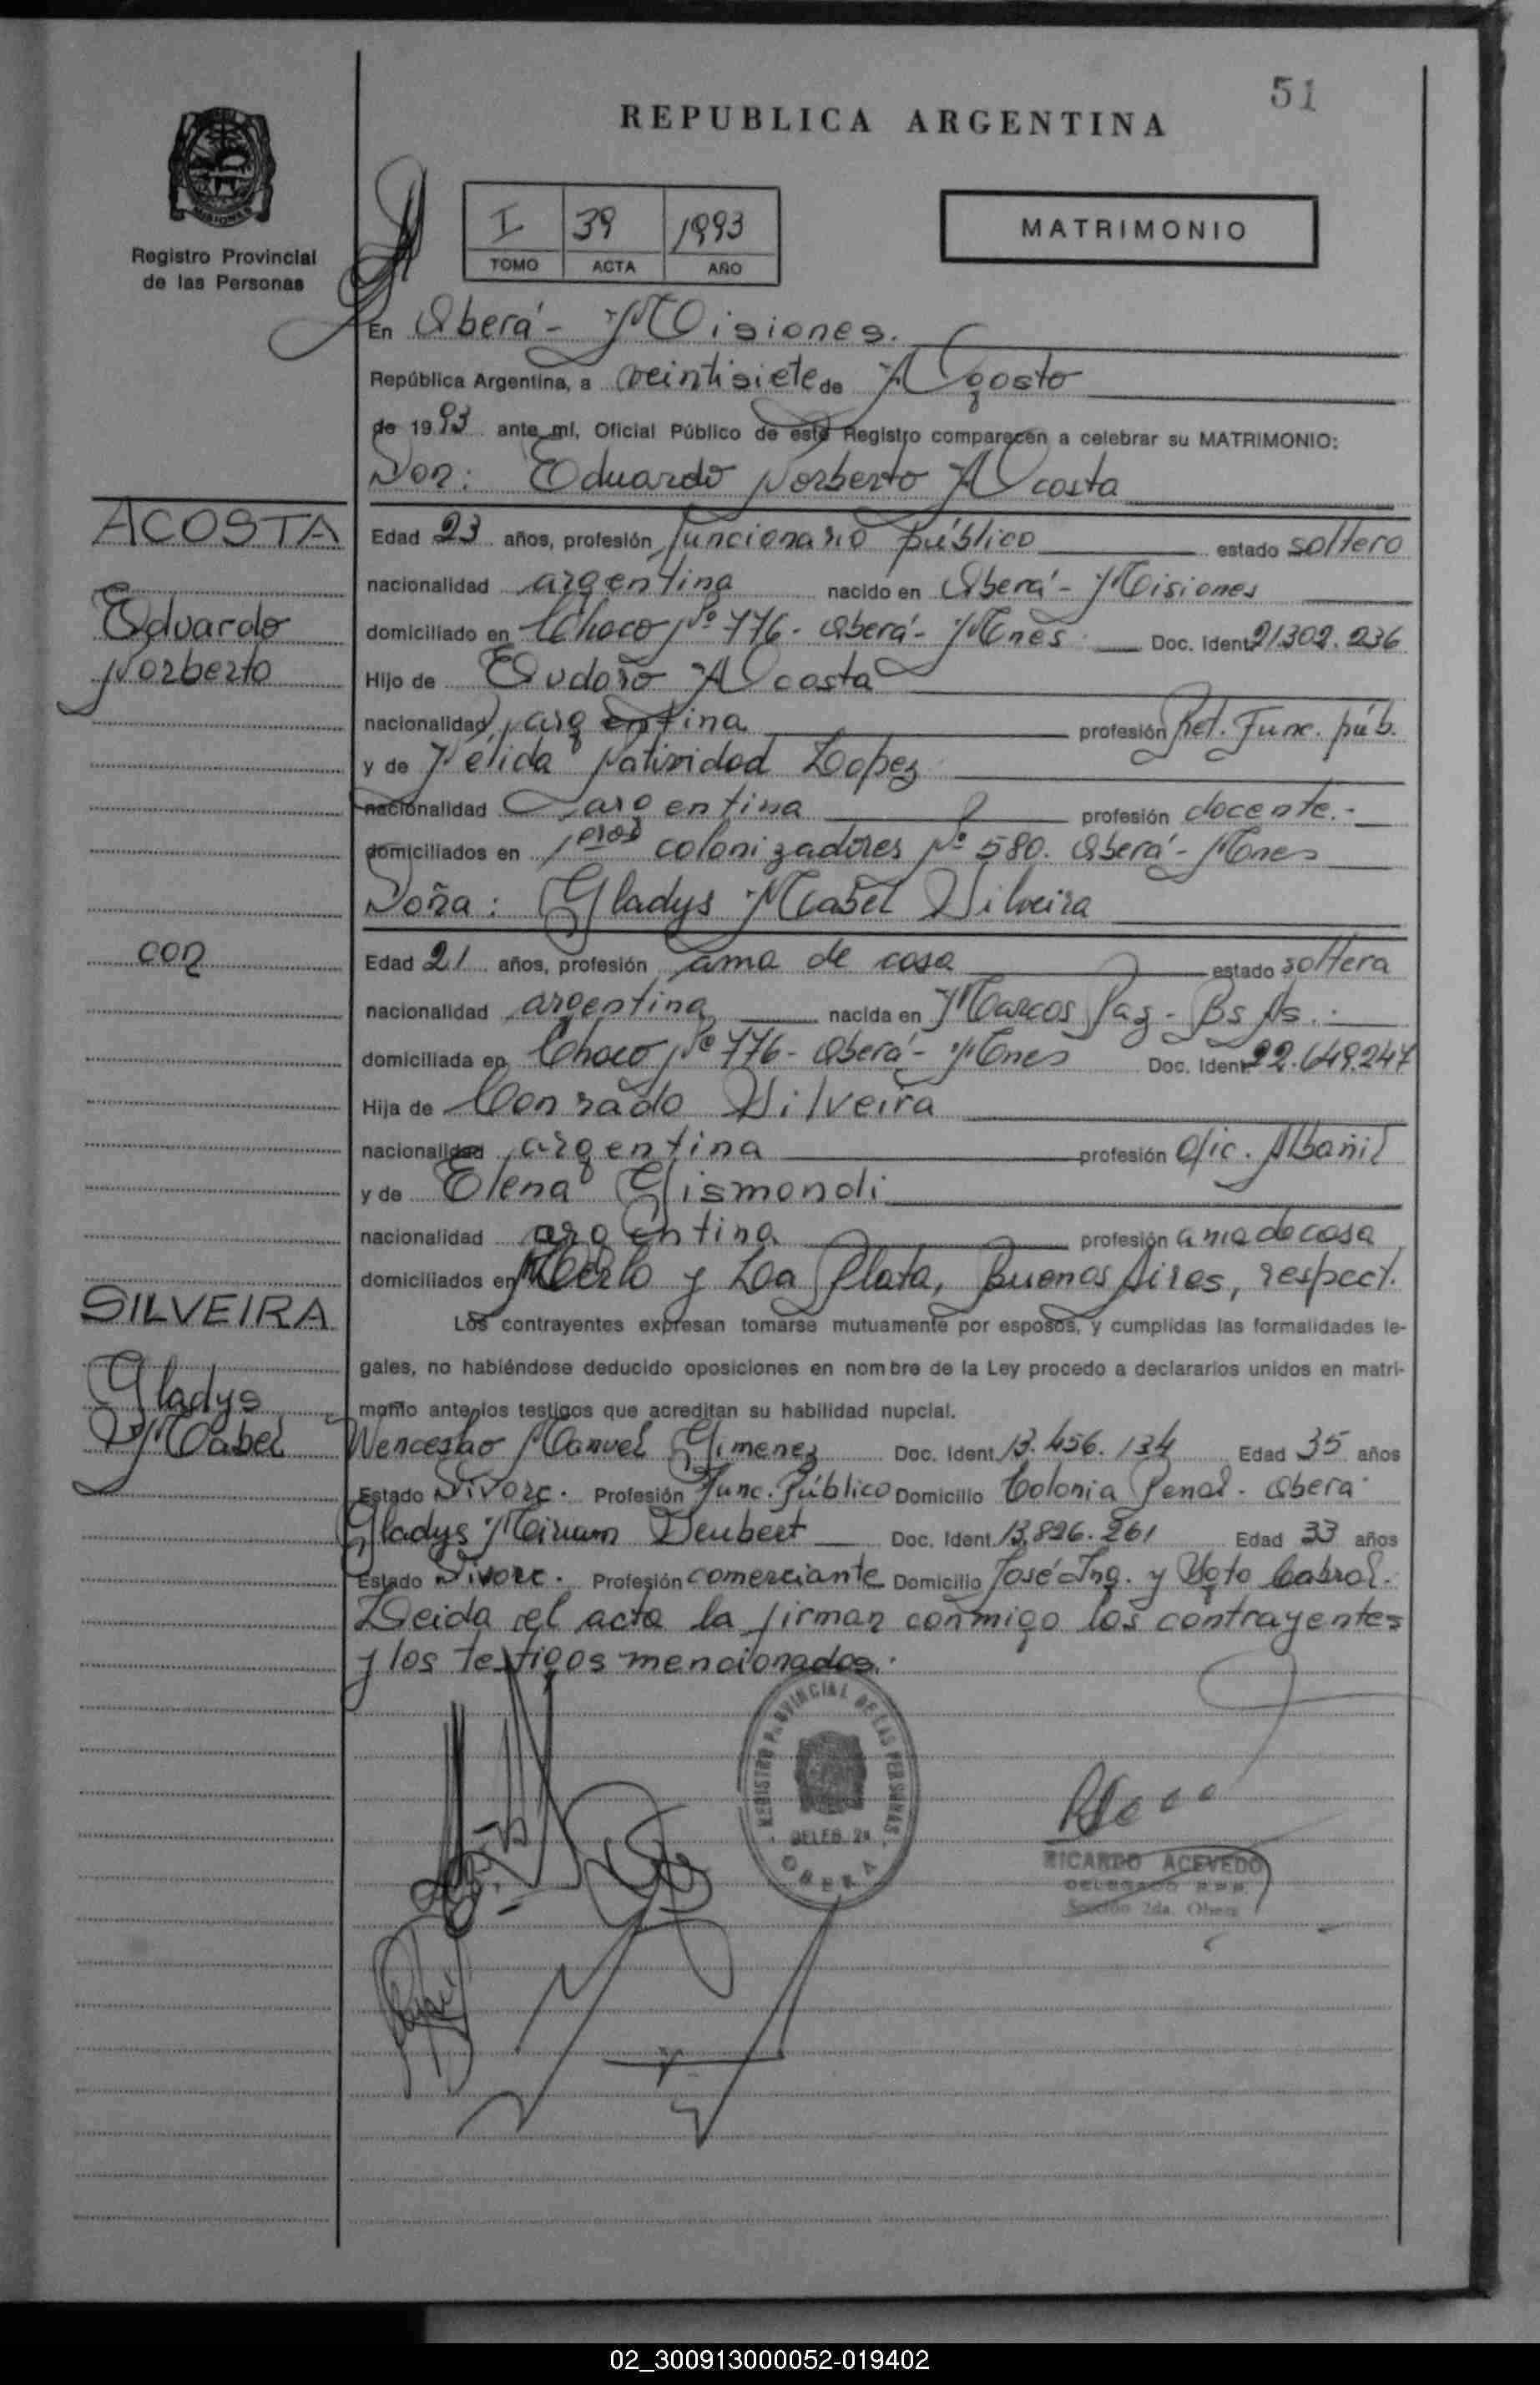 51
REPUBLICA ARGENTINA
MISIONES
Registro Provincial
de las Personas
I 39 1993
TOMO ACTA AÑO
MATRIMONIO
En Oberá - Misiones.
República Argentina, a veintisiete de Agosto
de 1993 ante mí, Oficial Público de este Registro comparecen a celebrar su MATRIMONIO:
Don: Eduardo Norberto Acosta
ACOSTA
Eduardo
Norberto
Edad 23 años, profesión funcionario público estado soltero
nacionalidad argentina nacido en Oberá - Misiones
domiciliado en Chaco Nº 776 - Oberá - Mnes Doc. Ident. 21.302.236
Hijo de Eudoro Acosta
nacionalidad argentina profesión Ret. Func. púb.
y de Nélida Natividad Lopez
nacionalidad argentina profesión docente.-
domiciliados en 1eros colonizadores Nº 580. Oberá - Mnes
Doña: Gladys Mabel Silveira
con
Edad 21 años, profesión ama de casa estado soltera
nacionalidad argentina nacida en Marcos Paz - Bs As.
domiciliada en Chaco Nº 776 - Oberá - Mnes Doc. Ident. 22.649.247
Hija de Conrado Silveira
nacionalidad argentina profesión Ofic. Albañil
y de Elena Gismondi
nacionalidad argentina profesión ama de casa
domiciliados en Merlo y La Plata, Buenos Aires, respect.
SILVEIRA
Gladys
Mabel
Los contrayentes expresan tomarse mutuamente por esposos, y cumplidas las formalidades le-
gales, no habiéndose deducido oposiciones en nombre de la Ley procedo a declararlos unidos en matri-
monio ante los testigos que acreditan su habilidad nupcial.
Wenceslao Manuel Gimenez Doc. Ident. 13.456.134 Edad 35 años
Estado Divorc. Profesión Func. Público Domicilio Colonia Penal - Oberá
Gladys Miriam Deubert Doc. Ident. 13.826.261 Edad 33 años
Estado Divorc. Profesión comerciante Domicilio José Ing. y Sgto Cabral.
Leida el acta la firman conmigo los contrayentes
y los testigos mencionados.
REGISTRO PROVINCIAL DE LAS PERSONAS
DELEG. 2ª
OBERA
RICARDO ACEVEDO
DELEGADO R.P.P.
Sección 2da. Oberá
02_300913000052-019402